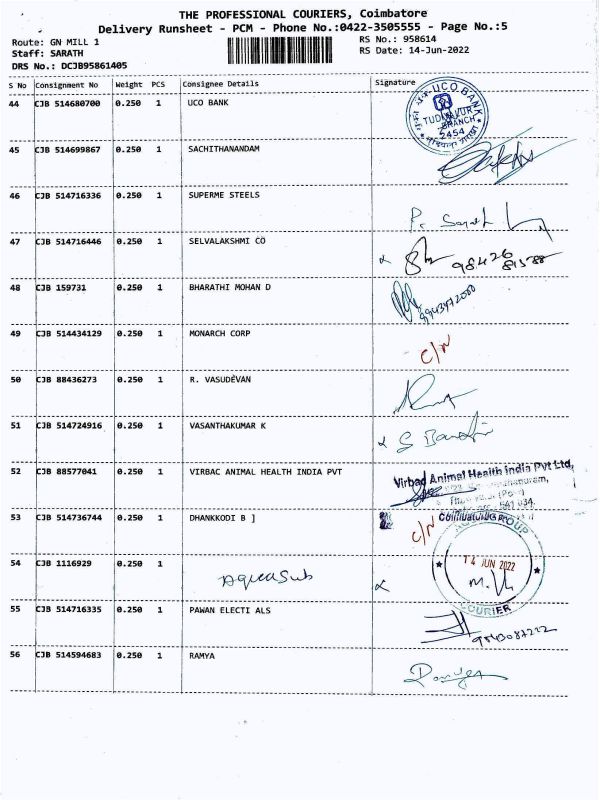 THE PROFESSIONAL COURIERS, Coimbatore
Delivery Runsheet - PCM - Phone No.:0422-3505555 - Page No.:5
Route: GN MILL 1
RS No.: 958614
Staff: SARATH
RS Date: 14-Jun-2022
DRS No.: DCJB95861405
S No Consignment No Weight PCS Consignee Details Signature
44 CJB 514680700 0.250 1 UCO BANK
UCO BANK
TUDIYALUR
BRANCH
2454
45 CJB 514699867 0.250 1 SACHITHANANDAM
46 CJB 514716336 0.250 1 SUPERME STEELS
47 CJB 514716446 0.250 1 SELVALAKSHMI CO
98426
48 CJB 159731 0.250 1 BHARATHI MOHAN D
49 CJB 514434129 0.250 1 MONARCH CORP C/N
50 CJB 88436273 0.250 1 R. VASUDEVAN
51 CJB 514724916 0.250 1 VASANTHAKUMAR K
52 CJB 88577041 0.250 1 VIRBAC ANIMAL HEALTH INDIA PVT
Virbac Animal Health India Pvt Ltd,
53 CJB 514736744 0.250 1 DHANKKODI B ] C/N
GROUP
14 JUN 2022
COURIER
54 CJB 1116929 0.250 1 Aquasub
55 CJB 514716335 0.250 1 PAWAN ELECTI ALS
9843087222
56 CJB 514594683 0.250 1 RAMYA
Ramya